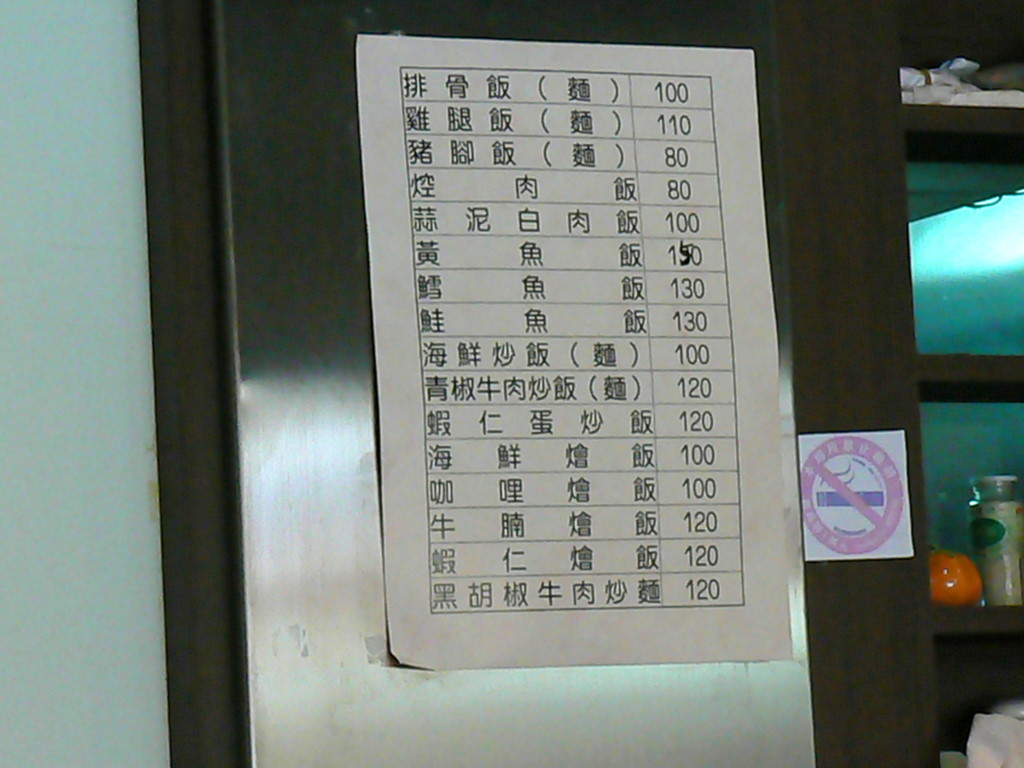 排骨飯(麵) 100
雞腿飯(麵) 110
豬腳飯(麵) 80
焢肉飯 80
蒜泥白肉飯 100
黃魚飯 150
鱈魚飯 130
鮭魚飯 130
海鮮炒飯(麵) 100
青椒牛肉炒飯(麵) 120
蝦仁蛋炒飯 120
海鮮燴飯 100
咖哩燴飯 100
牛腩燴飯 120
蝦仁燴飯 120
黑胡椒牛肉炒麵 120